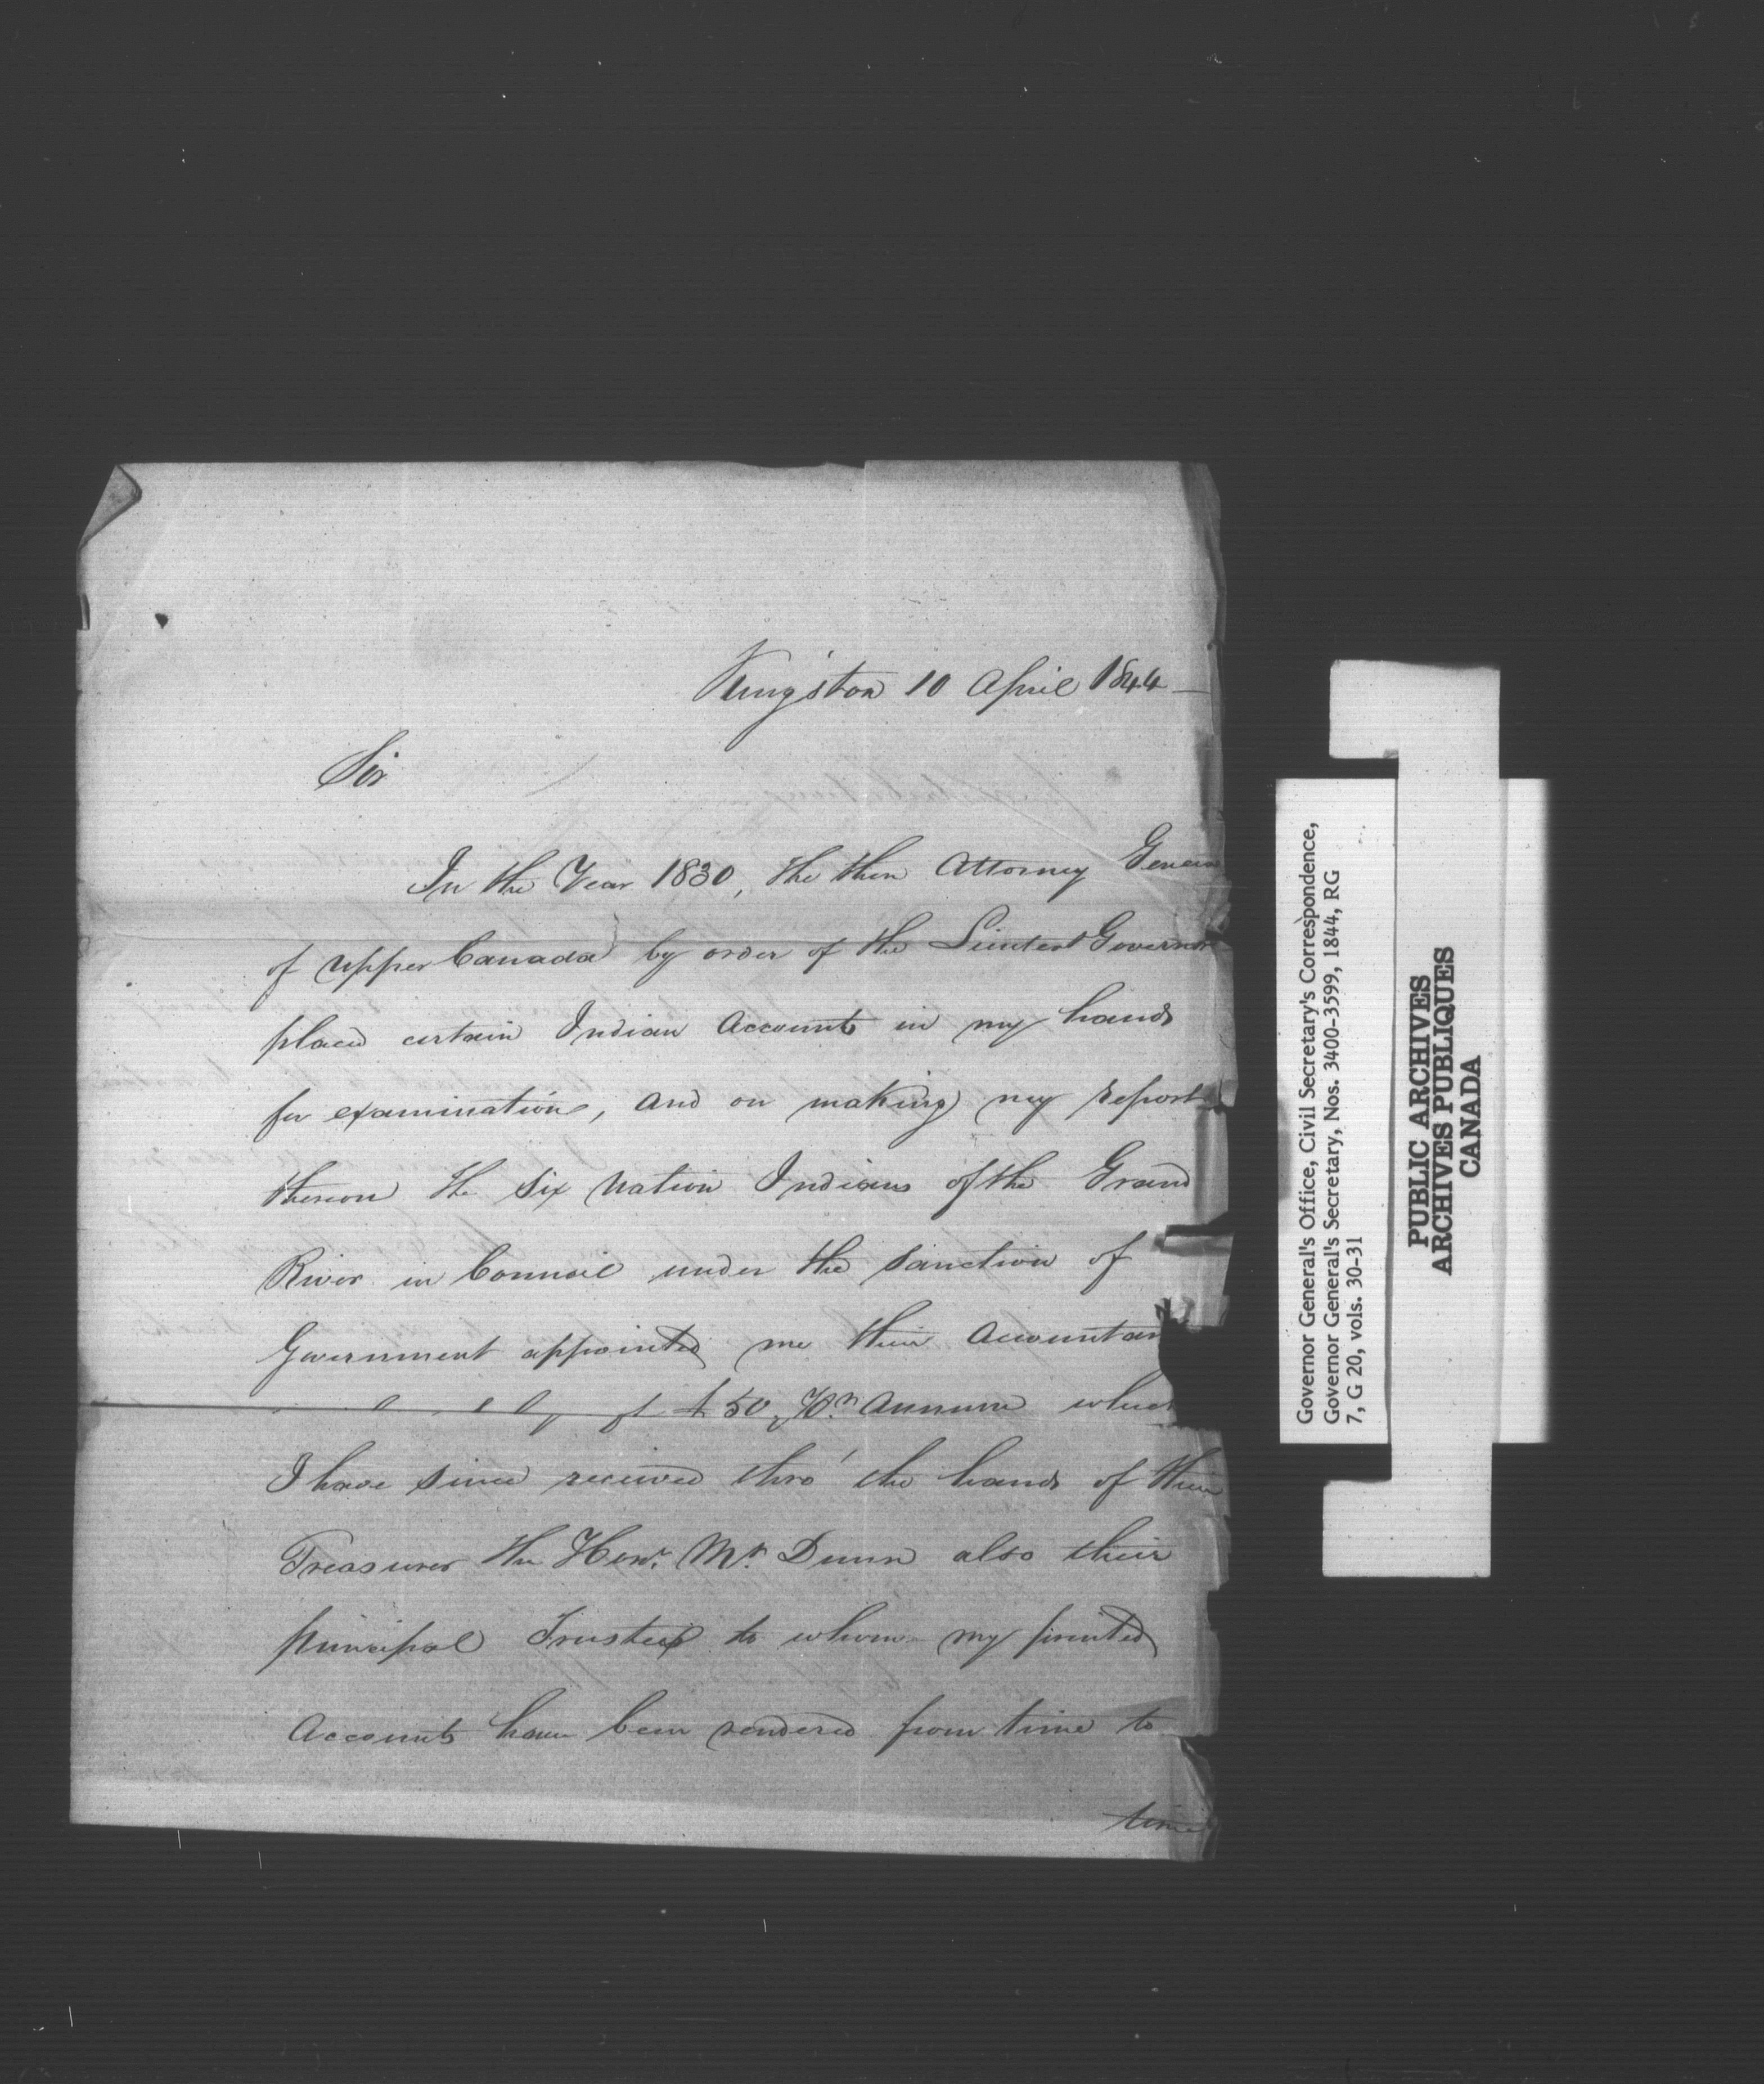 Kingston 10 April 1844 —
Sir
In the Year 1830, the then Attorney Genera
of Upper Canada by order of the Lieutent Governor
placed certain Indian Accounts in my hands
for examination, and on making my report
thereon the Six Nation Indians of the Grand
River in Council under the sanction of
Government appointed me their Accountan
£50 Pr. Annum which
I have since received thro' the hands of their
Treasurer the Honr. Mr. Dunn also their
principal Trustee to whom my printed
Accounts have been rendered from time to
time
Governor General's Office, Civil Secretary's Correspondence,
Governor General's Secretary, Nos. 3400-3599, 1844, RG
7, G 20, vols. 30-31
PUBLIC ARCHIVES
ARCHIVES PUBLIQUES
CANADA